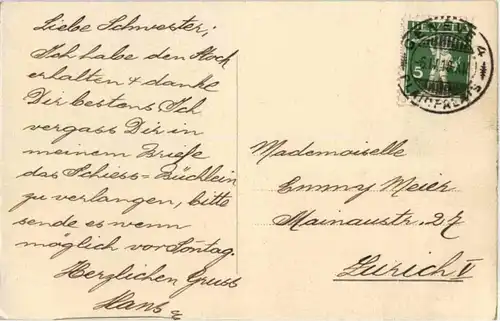 Liebe Schwester;
Ich habe den Stock
erhalten & danke
Dir bestens. Ich
vergass Dir in
meinem Briefe
das Schiess=Büchlein
zu verlangen, bitte
sende es wenn
möglich vor Sontag.
Herzlichen Gruss
Hans
GENÈVE 4
5
PLAINPALAIS
Mademoiselle
Emmy Meier
Mainaustr. 27
Zürich V